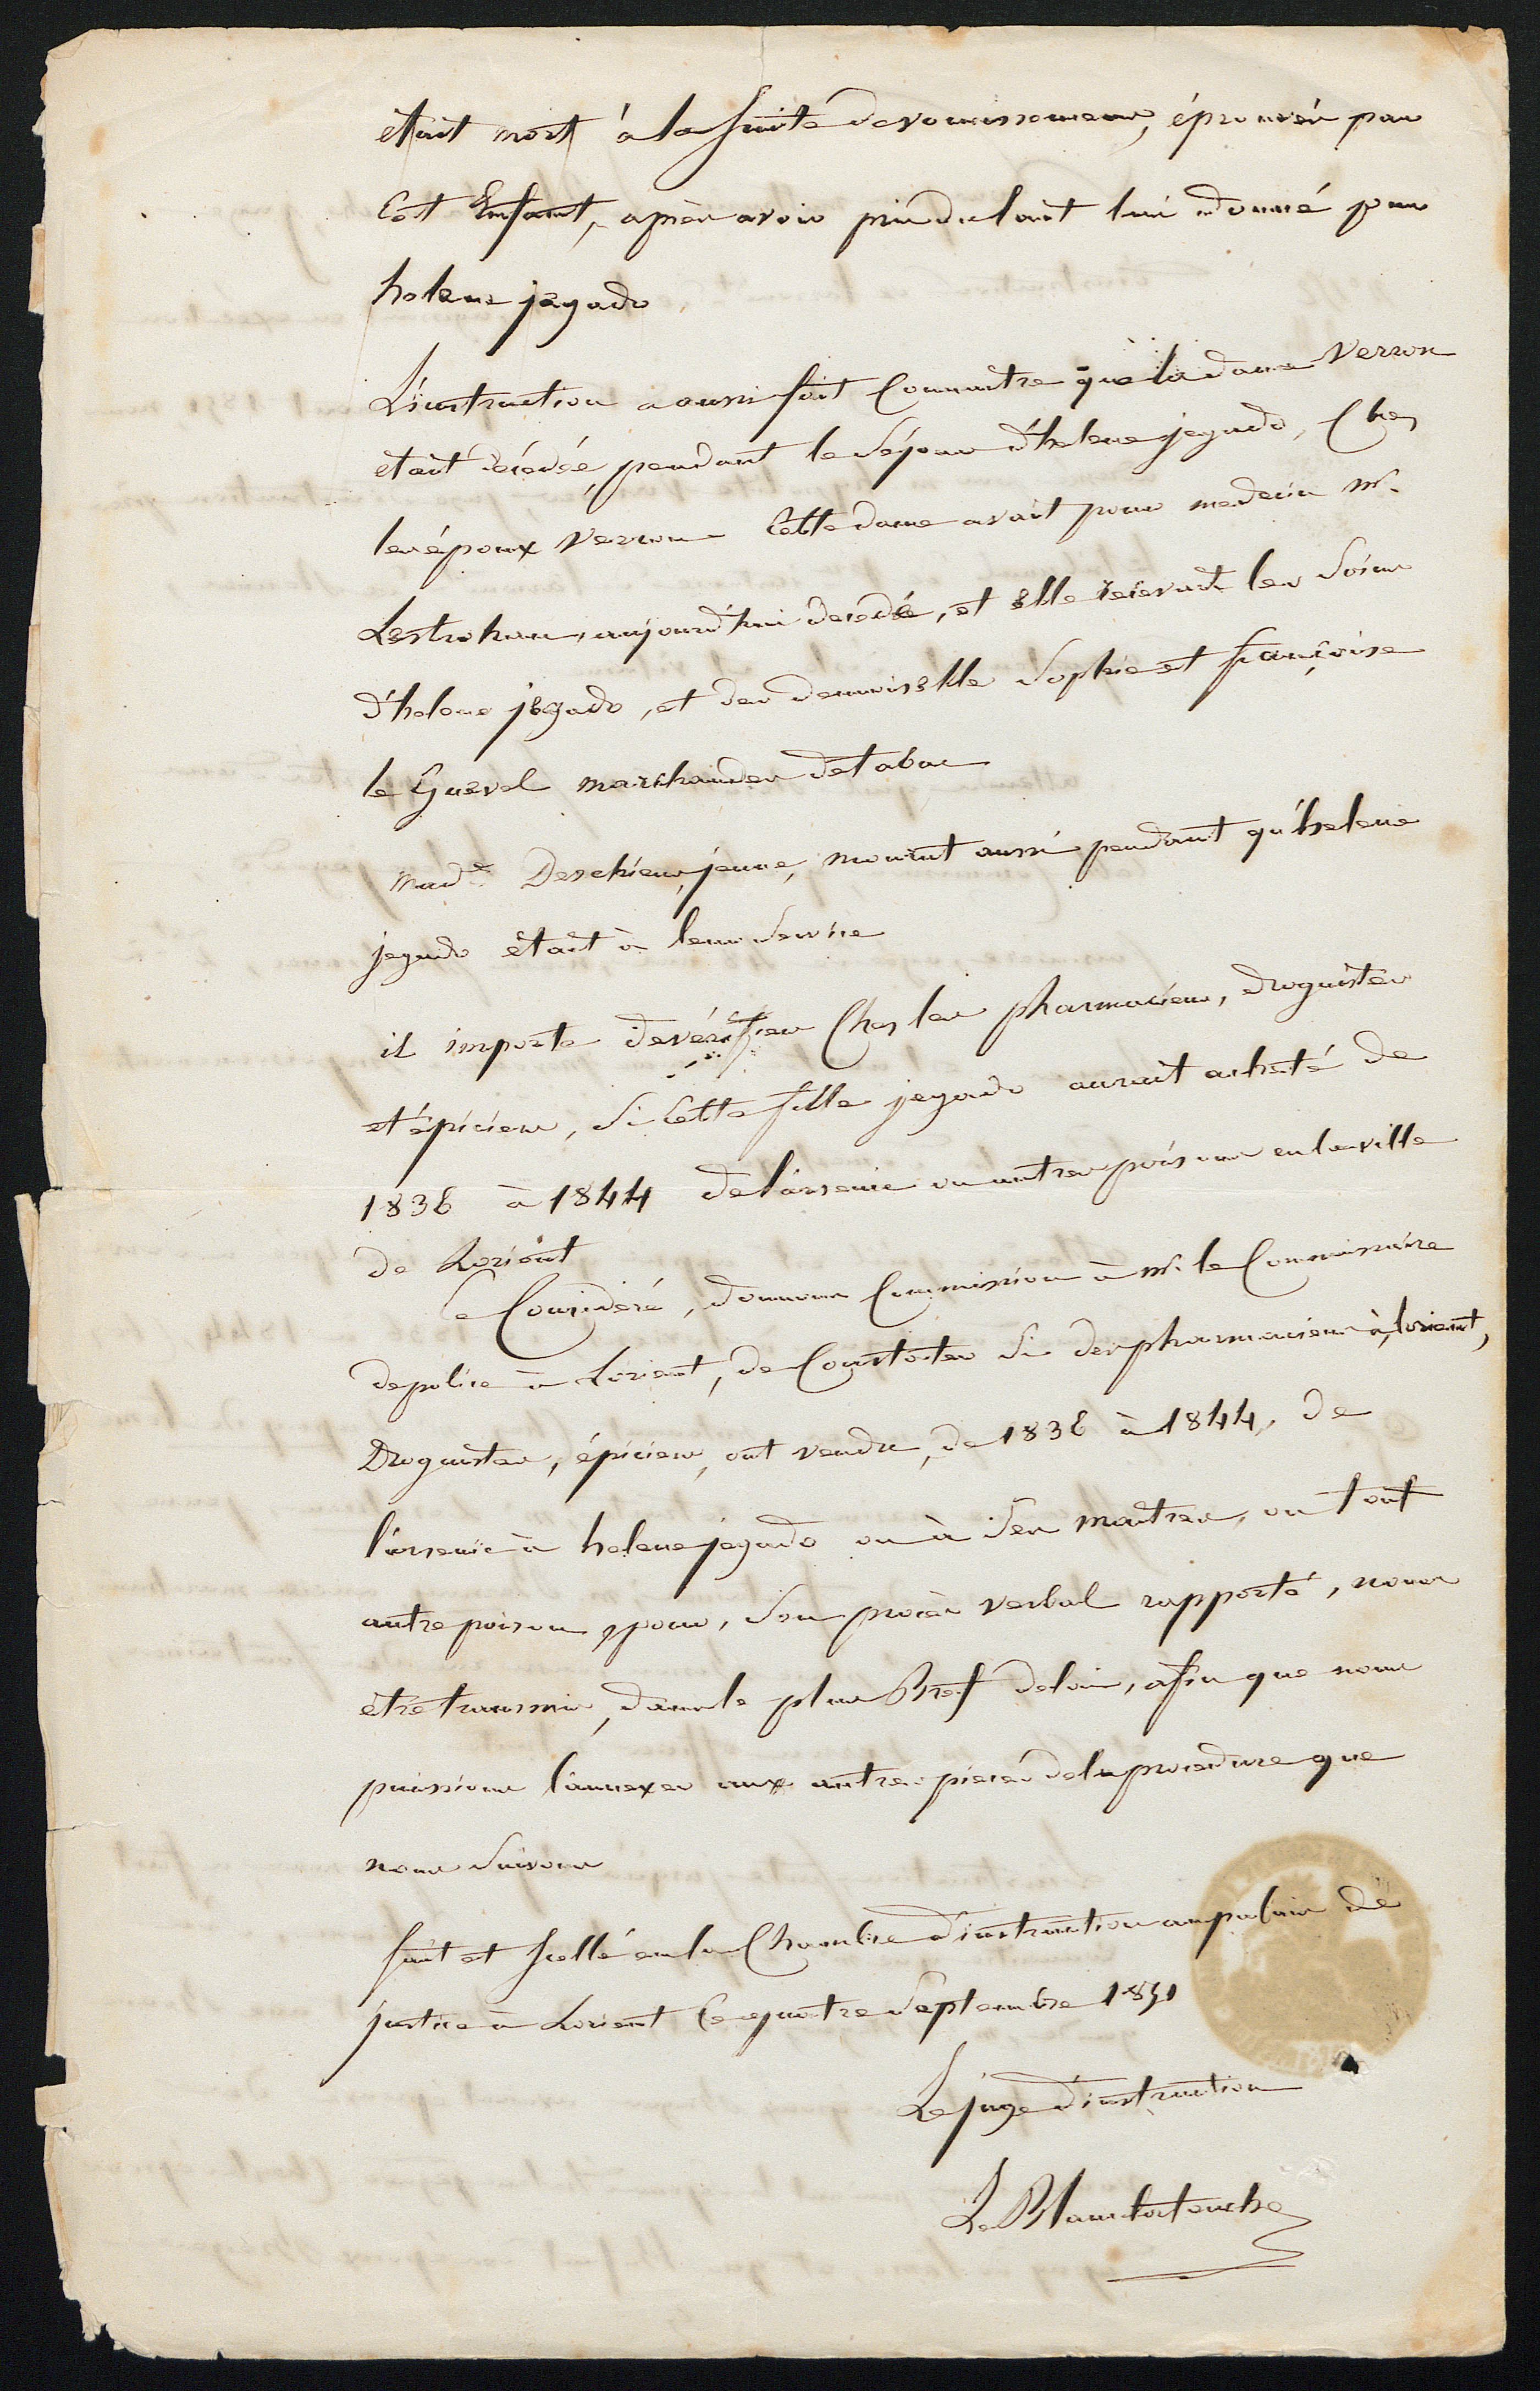 était mort à la suite de vomissemens, éprouvés par
cet Enfant, après avoir pris du lait lui donné par
helene jegado
L'instruction a aussi fait Connaitre que la dame Verron
etait décédée, pendant le séjour d'helene jegado, Chez
les époux Verron Cette dame avait pour medecin Mr.
Lestrohan, aujourd'hui décédé, et Elle recevait les soins
d'helene jegado, et des demoiselle Sophie et françoise
le Guevel marchandes de tabac
Made Deschiens, jeune, mourut aussi pendant qu'helene
jegado était à leur service
il importe de vérifier Chez les pharmaciens, droguistes
et épiciers, Si Cette fille jegado aurait acheté de
1836 à 1844 de l'arsenic ou autres poisons en la ville
de Lorient
Ce Considéré, donnons Commission à Mr. le Commissaire
de police à Lorient, de Constater Si des pharmaciens à lorient,
Droguistes, épiciers, ont vendu, de 1836 à 1844, de
l'arsenic à helene jegado ou à ses maitres, ou tout
autre poison pour, son procès verbal rapporté, nous
être transmis, dans le plus Bref delai, afin que nous
puissions l'annexer aux autres pièces de la procedure que
nous suivons
fait et scellé en la Chambre d'instruction au palais de
justice à Lorient Ce quatre Septembre 1851
Le juge d'instruction